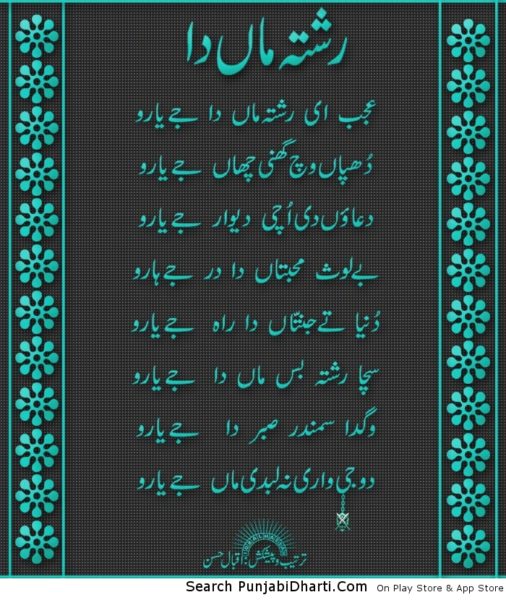 رشتہ ماں دا
عجب ای رشتہ ماں دا جے یارو
دُھپاں وچ گھنی چھاں جے یارو
دعاؤں دی اُچی دیوار جے یارو
بے لوث محبتاں دا در جے ہارو
دُنیا تے جنتّاں دا راہ جے یارو
سچا رشتہ بس ماں دا جے یارو
وگدا سمندر صبر دا جے یارو
دوجی واری نہ لبدی ماں جے یارو
ترتیب و پیشکش: اقبال حسن
Search PunjabiDharti.Com On Play Store & App Store